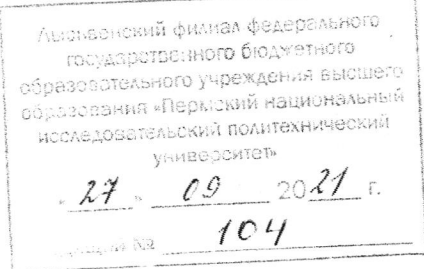 Лысьвенский филиал федерального
государственного бюджетного
образовательного учреждения высшего
образования «Пермский национальный
исследовательский политехнический
университет»
" 27 " 09 2021 г.
№ 104